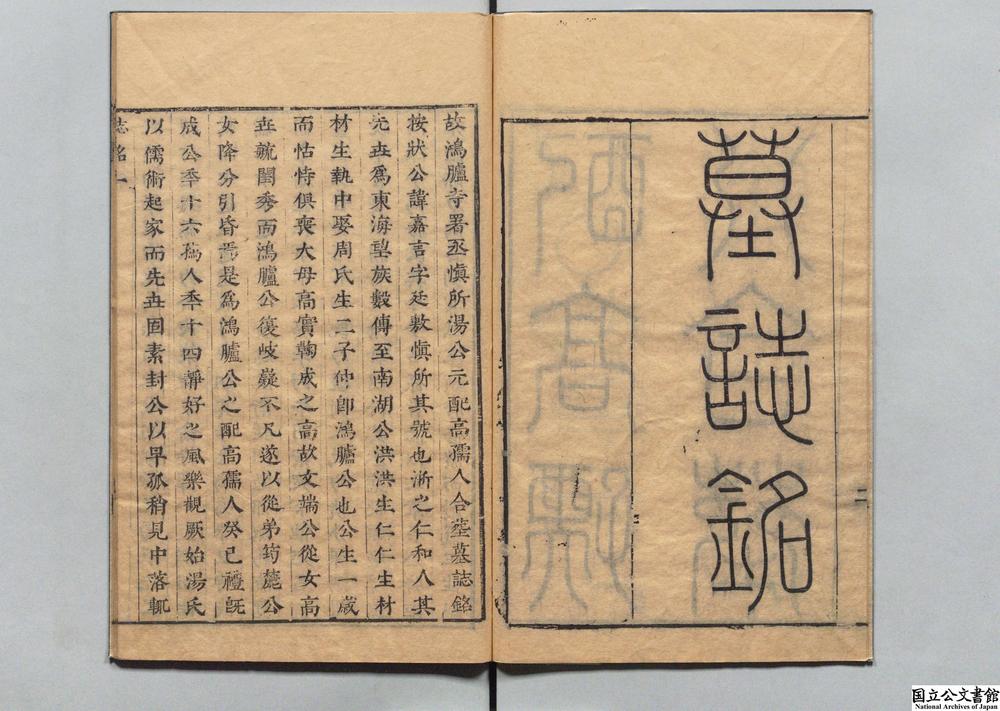 墓誌銘
二
故鴻臚寺署丞愼所湯公元配高孺人合葬墓誌銘
按狀公諱嘉言字廷敷愼所其號也浙之仁和人其
先世爲東海望族數傳至南湖公洪洪生仁仁生材
材生執中娶周氏生二子仲卽鴻臚公也公生一歲
而怙恃俱喪大母高實鞠成之高故文端公從女高
世毓閨秀而鴻臚公復岐嶷不凡遂以從弟筠麓公
女降分引昏焉是爲鴻臚公之配高孺人癸巳禮旣
成公年十六孺人年十四靜好之風樂觀厥始湯氏
以儒術起家而先世固素封公以早孤稍見中落輒
誌銘一
国立公文書館
National Archives of Japan